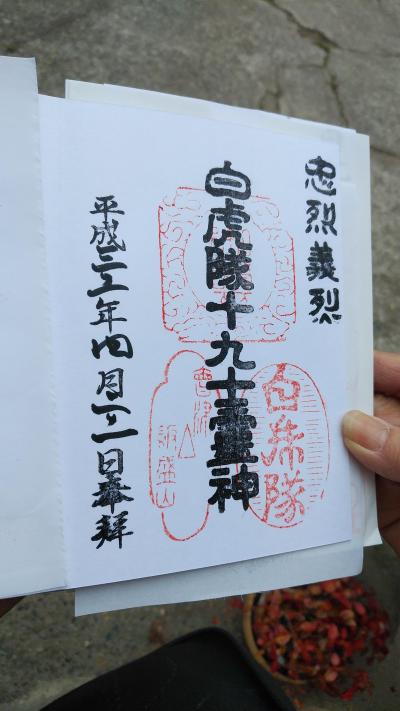 忠烈義烈
白虎隊十九士霊神
白虎隊
會津
飯盛山
平成三十一年四月二十一日奉拝